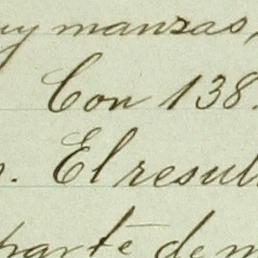 uy mansas,
Con 138
. El resul
parte de m